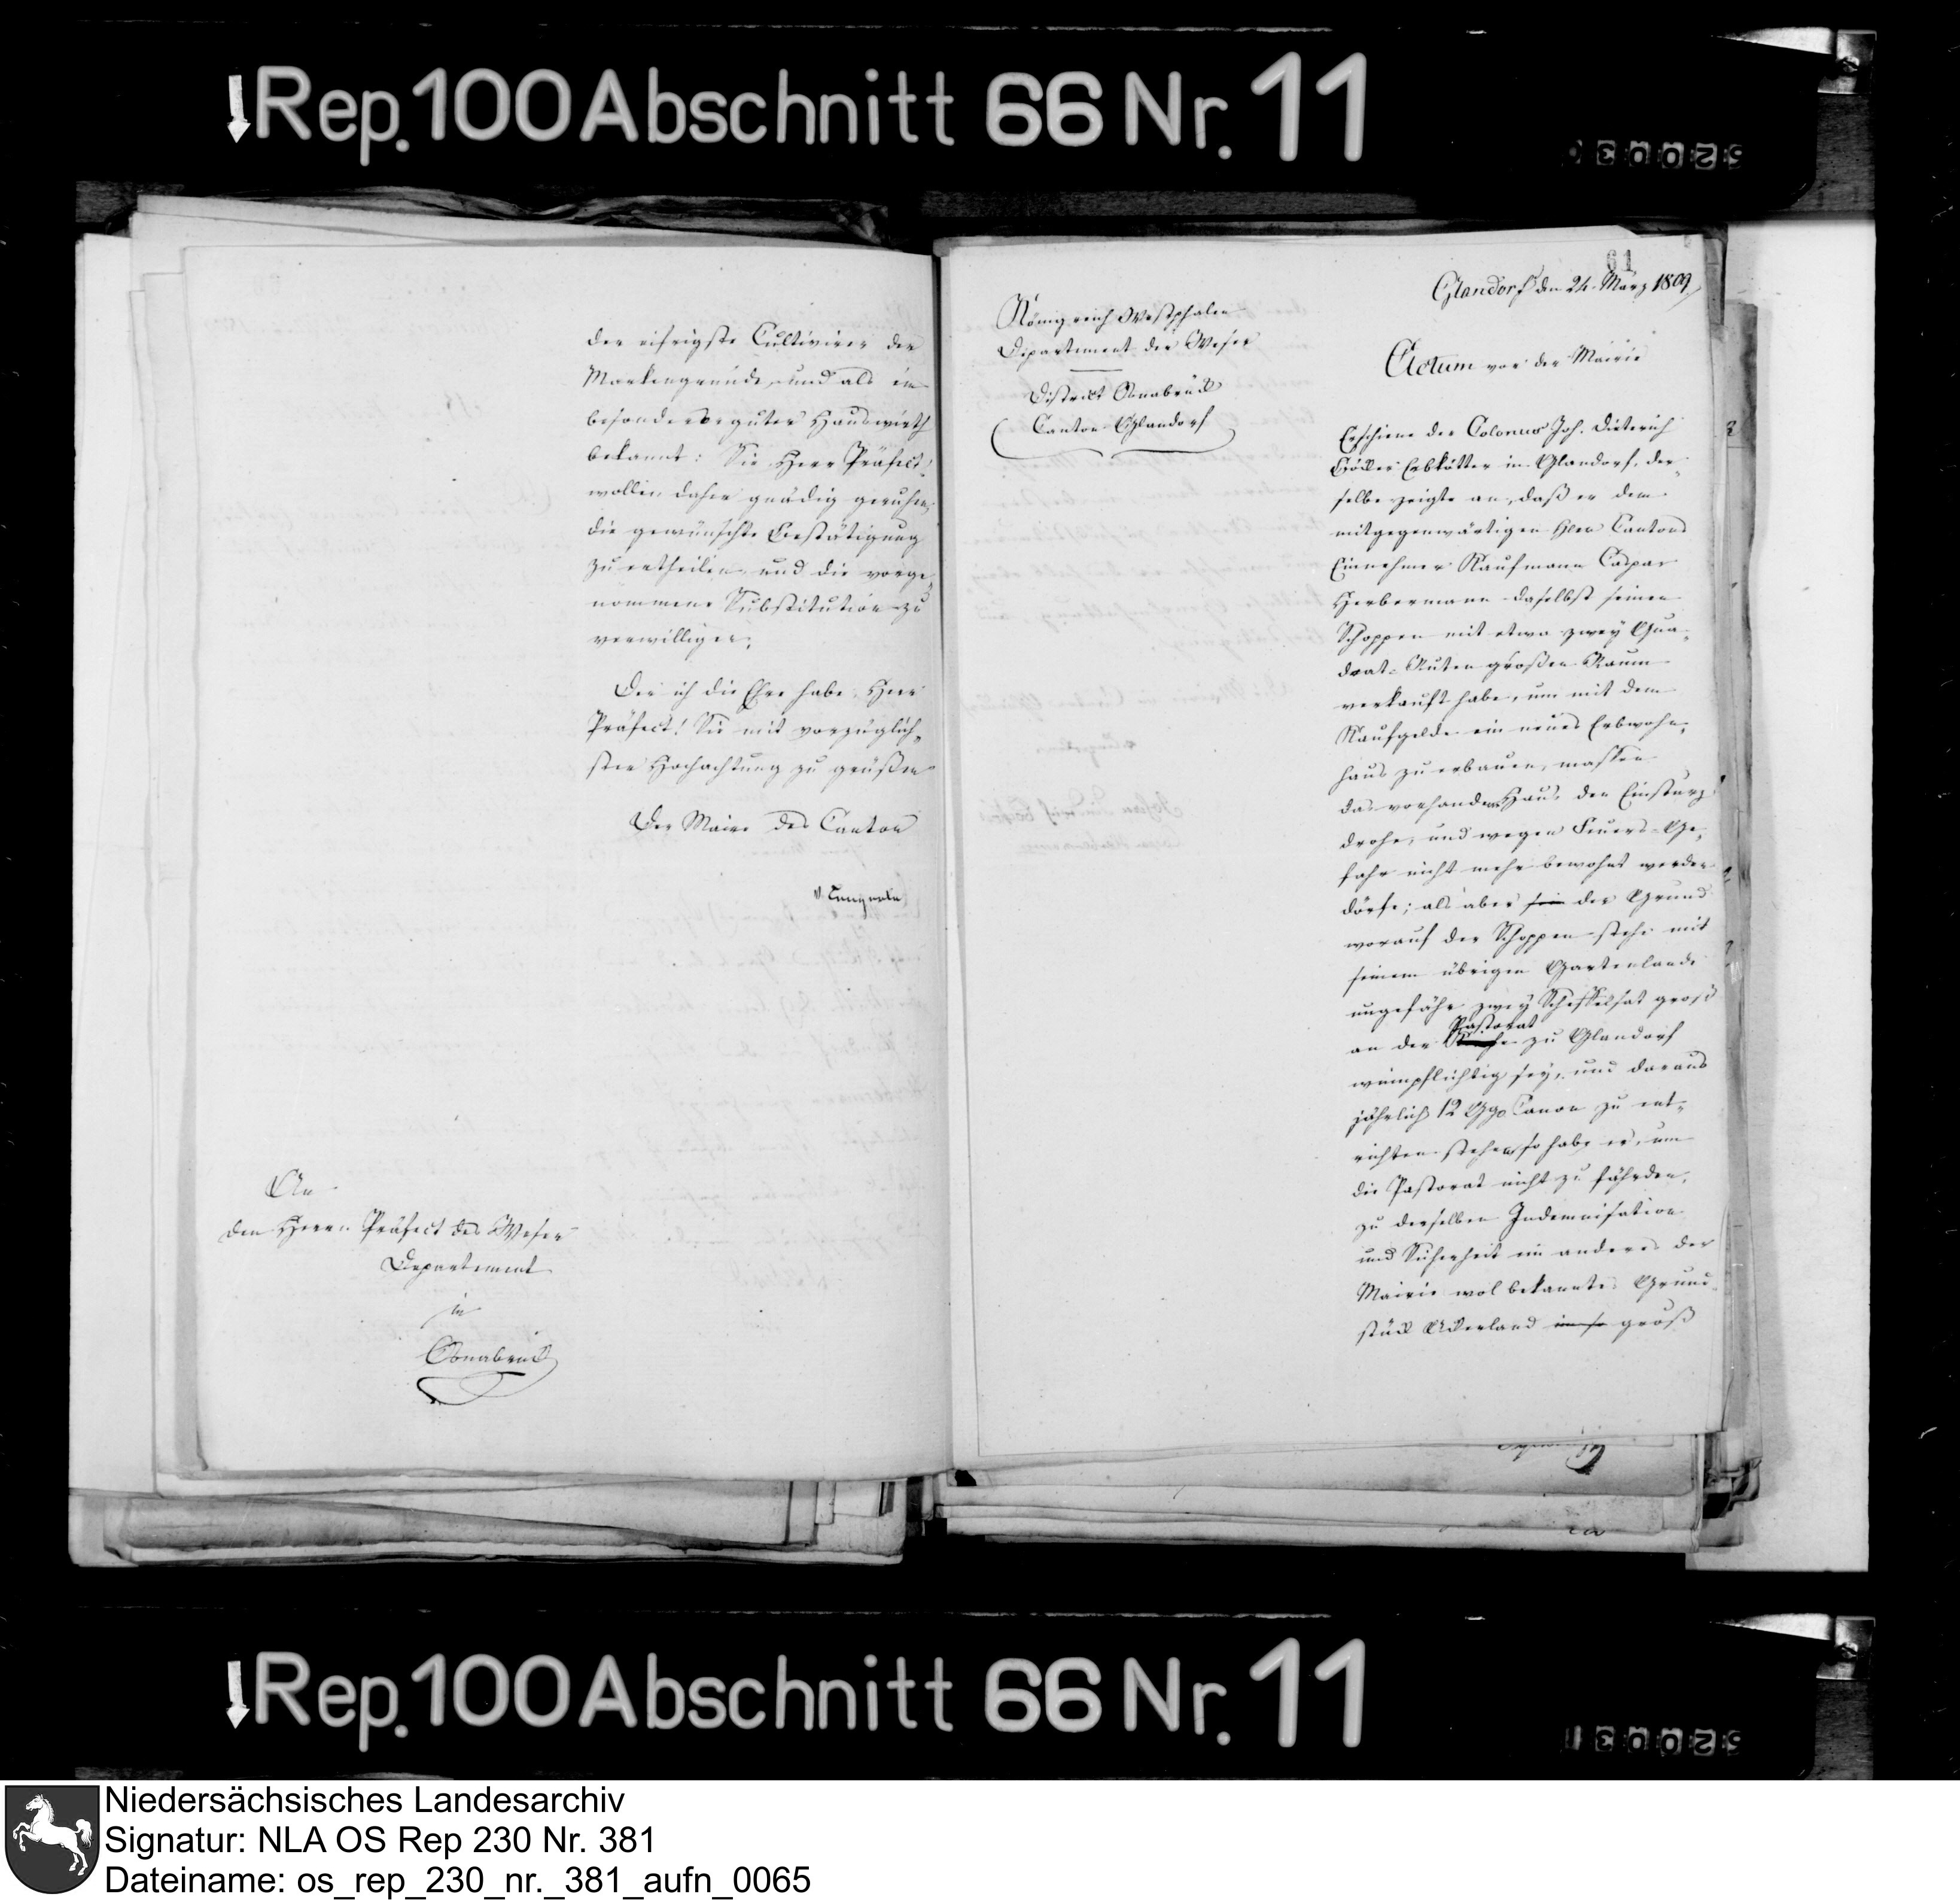 Rep. 100 Abschnitt 66 Nr. 11
der eifrigste Cultivirer der
Markengründe, und als ein
besonders guter Hauswirth
bekannt: Sie Herr Präfect!
wollen daher gnädig geruhen,
die gewünschte Bestätigung
zu ertheilen, und die vorge„
nommene Substitution zu
verwilligen;
Der ich die Ehre habe, Herr
Präfect! Sie mit vorzüglich„
ster Hochachtung zu grüßen
Der Maire des Canton
An
den Herrn Präfect des Weser
Departement
in
Osnabrück
61
Glandorf den 24. März 1809
Königreich Westphalen
Departement der Weser
District Osnabrück
Canton Glandorf
Actum vor der Mairie
Erschiene der Colonus Joh. Dieterich
Erbkötter in Glandorf, der„
selbe zeigte an, daß er dem
mitgegenwärtigen Hern Cantons
Einnehmer Kaufmann Caspar
Herbermann daselbst seinen
Schoppen mit etwa zwey Qua„
drat-Ruten großen Raum
verkauft habe, um mit dem
Kaufgelde ein neues Erbwohn„
haus zu erbauen, massen
das vorhandene Haus den Einsturz
drohe, und wegen Feuers-Ge„
fahr nicht mehr bewohnt werden
dörfe; als aber sein der Grund
worauf der Schoppen stehe mit
seinem übrigen Gartenlande
ungefähr zwey Scheffelsat groß
Pastorat
an der zu Glandorf
weinpflichtig sey, und daraus
jährlich 12 Ggr Canon zu ent„
richten stehen, so habe er, um
die Pastorat nicht zu fährden,
zu derselben Indemnisation
und Sicherheit ein anderes der
Mairie wol bekanntes Grund„
stück Ackerland groß
Rep. 100 Abschnitt 66 Nr. 11
Niedersächsisches Landesarchiv
Signatur: NLA OS Rep 230 Nr. 381
Dateiname: os_rep_230_nr._381_aufn_0065